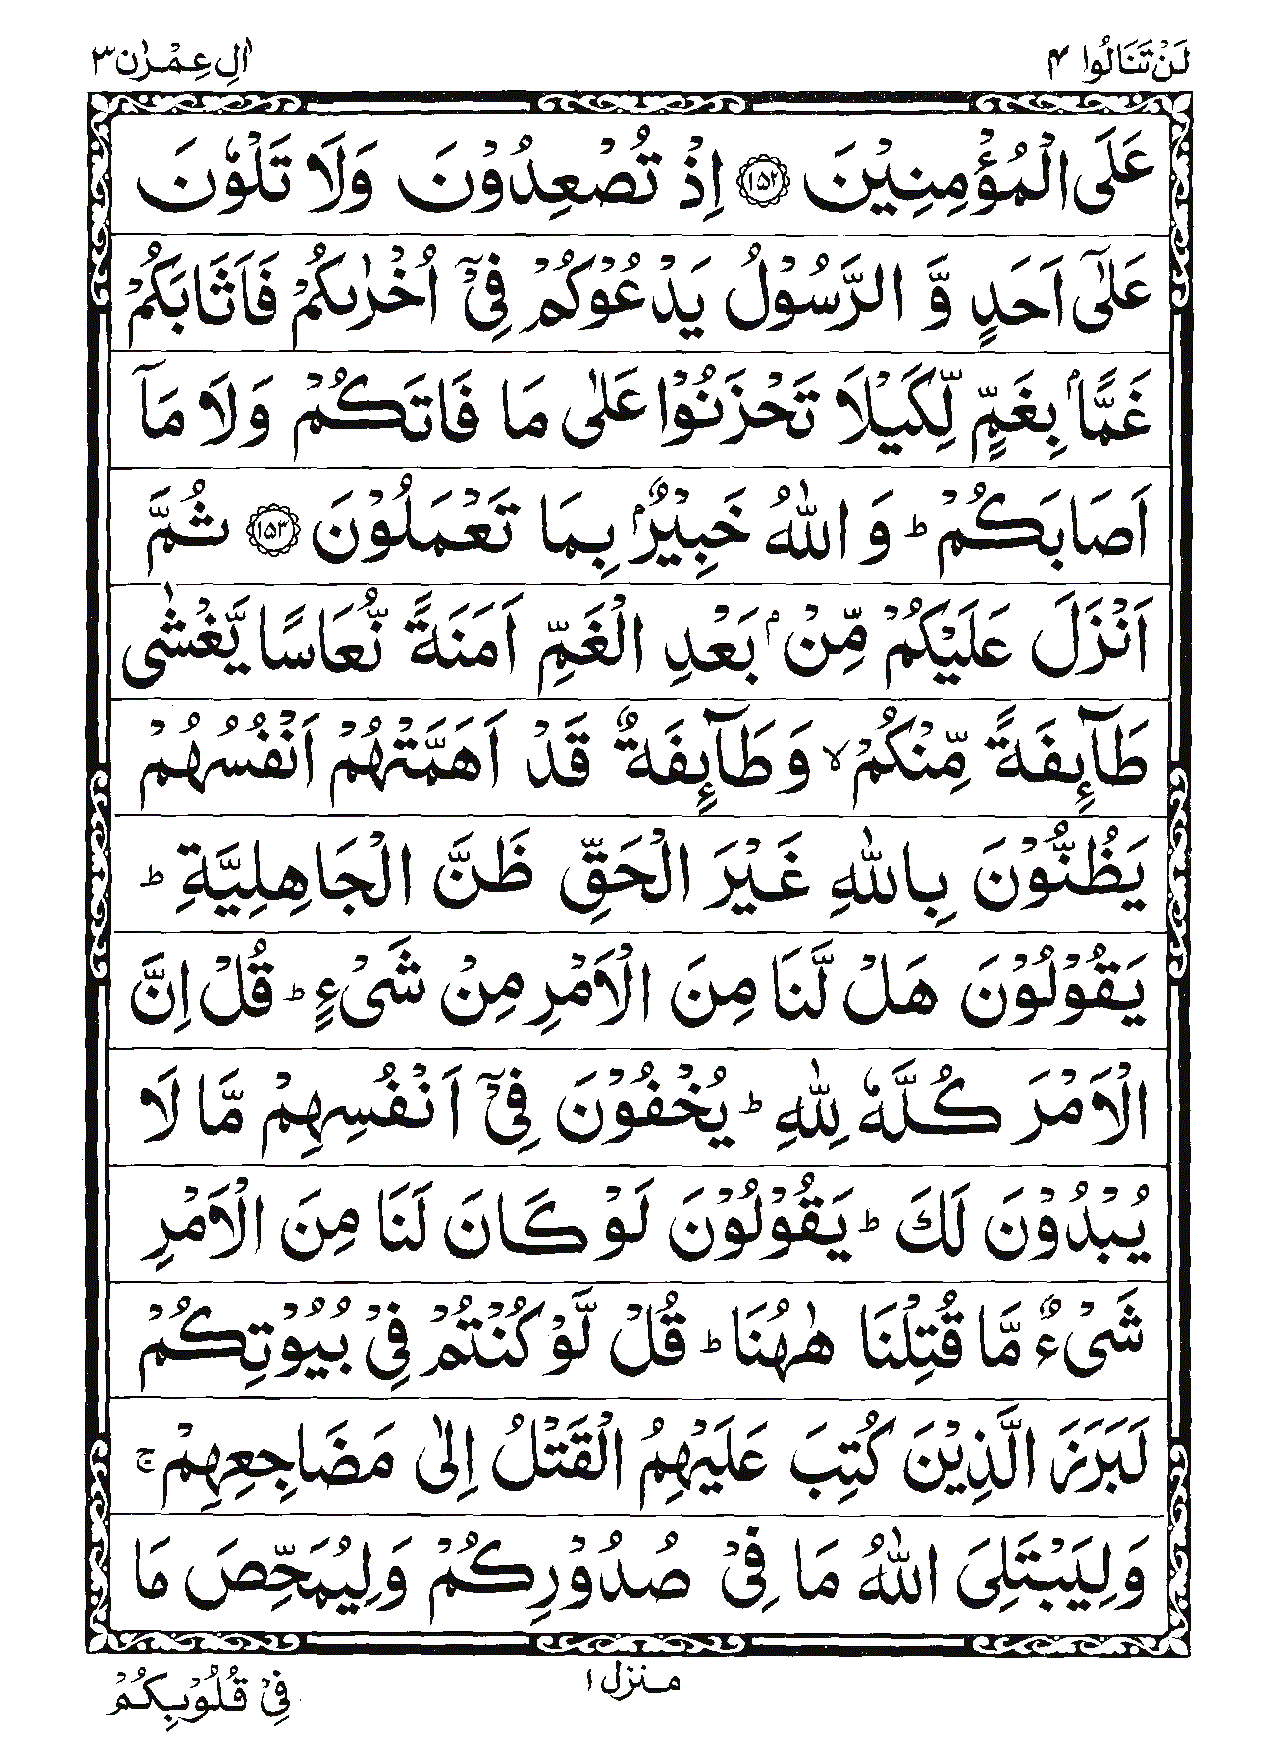 لَنْ تَنَالُوا ۴
اٰلِ عِمْرٰن ۳
عَلَى الْمُؤْمِنِيْنَ ۝۱۵۲ اِذْ تُصْعِدُوْنَ وَلَا تَلْوٗنَ
عَلٰٓى اَحَدٍ وَّ الرَّسُوْلُ يَدْعُوْكُمْ فِيْٓ اُخْرٰىكُمْ فَاَثَابَكُمْ
غَمًّۢا بِغَمٍّ لِّكَيْلَا تَحْزَنُوْا عَلٰى مَا فَاتَكُمْ وَلَا مَآ
اَصَابَكُمْ ؕ وَ اللّٰهُ خَبِيْرٌۢ بِمَا تَعْمَلُوْنَ ۝۱۵۳ ثُمَّ
اَنْزَلَ عَلَيْكُمْ مِّنْۢ بَعْدِ الْغَمِّ اَمَنَةً نُّعَاسًا يَّغْشٰى
طَآئِفَةً مِّنْكُمْ ۙ وَطَآئِفَةٌ قَدْ اَهَمَّتْهُمْ اَنْفُسُهُمْ
يَظُنُّوْنَ بِاللّٰهِ غَيْرَ الْحَقِّ ظَنَّ الْجَاهِلِيَّةِ ؕ
يَقُوْلُوْنَ هَلْ لَّنَا مِنَ الْاَمْرِ مِنْ شَيْءٍ ؕ قُلْ اِنَّ
الْاَمْرَ كُلَّهٗ لِلّٰهِ ؕ يُخْفُوْنَ فِيْٓ اَنْفُسِهِمْ مَّا لَا
يُبْدُوْنَ لَكَ ؕ يَقُوْلُوْنَ لَوْ كَانَ لَنَا مِنَ الْاَمْرِ
شَيْءٌ مَّا قُتِلْنَا هٰهُنَا ؕ قُلْ لَّوْ كُنْتُمْ فِيْ بُيُوْتِكُمْ
لَبَرَزَ الَّذِيْنَ كُتِبَ عَلَيْهِمُ الْقَتْلُ اِلٰى مَضَاجِعِهِمْ ۚ
وَلِيَبْتَلِيَ اللّٰهُ مَا فِيْ صُدُوْرِكُمْ وَلِيُمَحِّصَ مَا
منزل ۱
فِيْ قُلُوْبِكُمْ